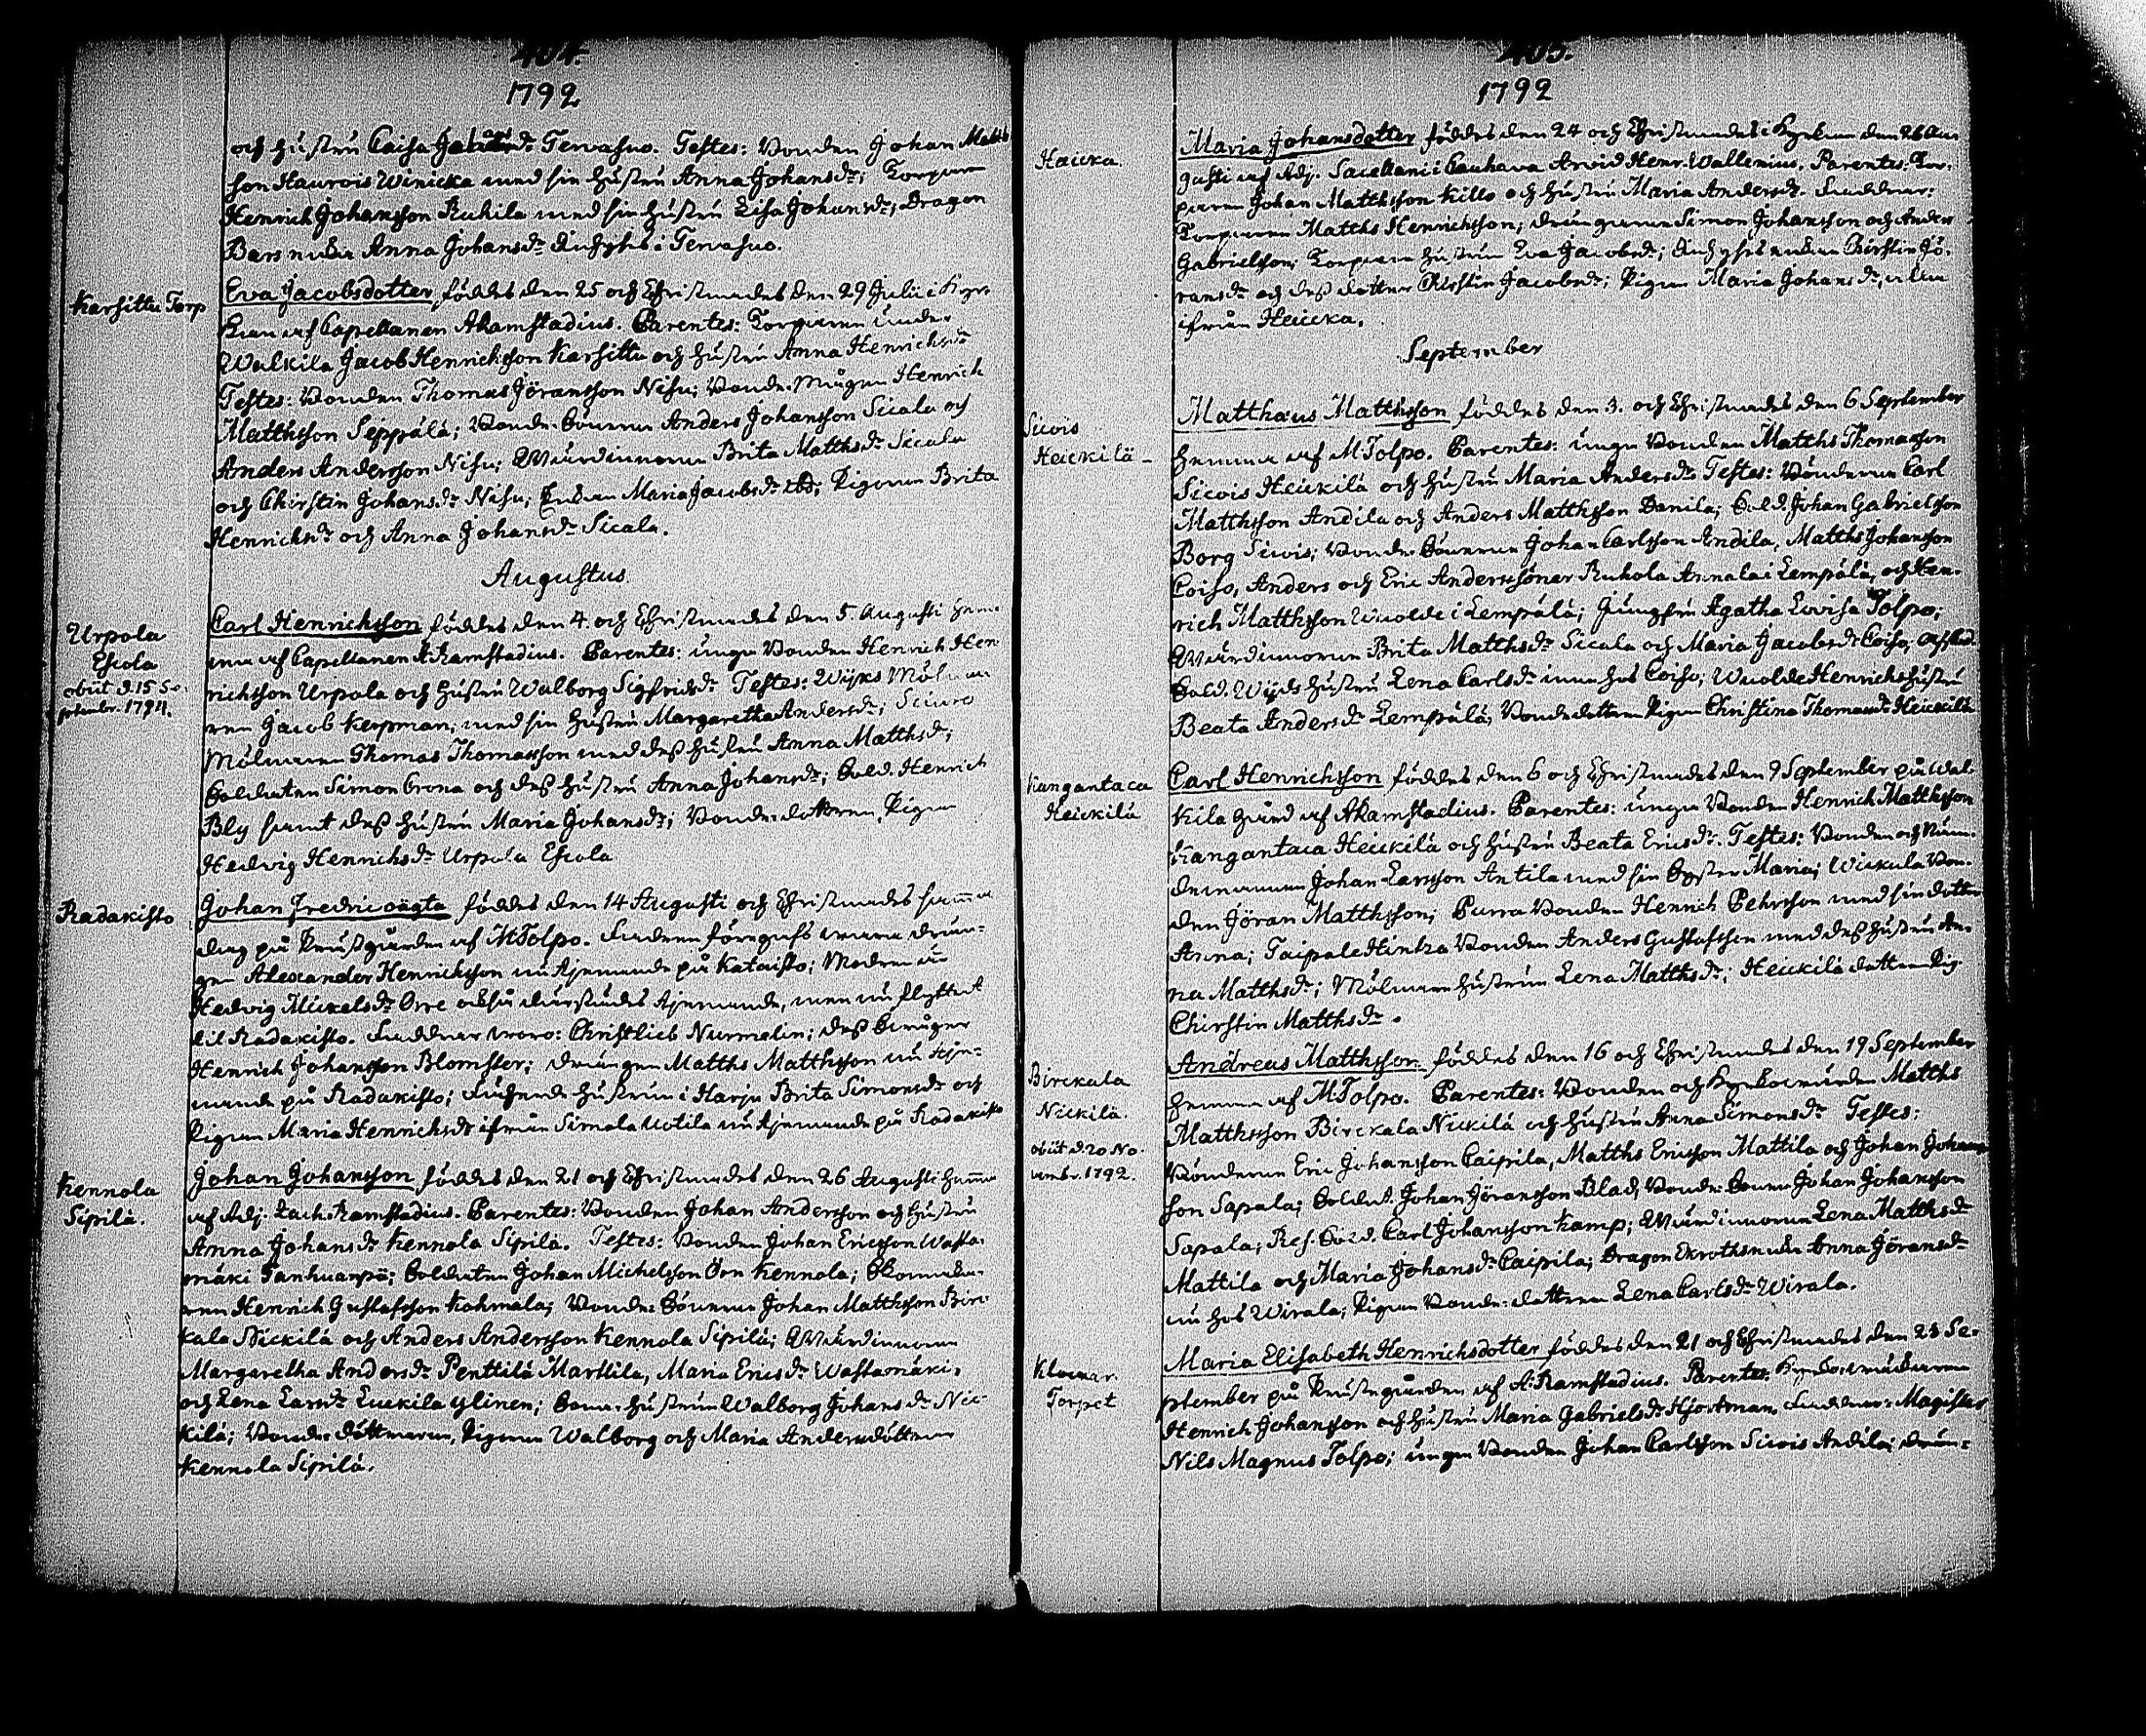 404.
1792
och hustru Caisa Tervasuo. Testes: Bonden Johan Matth
son Haurois Winicka med sin hustru Anna Johansdr; Torparen
Henrich Johansson Ruhila med sin hustru Lisa Johansdr; Dragon
Bars Anna Johansdr i Tervasuo.
Karsittu Torp
Eva Jacobsdotter föddes den 25 och Christnades den 29 Julii i Kyr
kan af Capellanen A Ramstadius. Parentes: Torparen under
Walkila Jacob Henricksson Karsittu och hustru Anna Henrichsdr
Testes: Bonden Thomas Jöransson Nisu; Bonde Mågen Henrich
Matthsson Seppälä; Bonde Sönerna Anders Johansson Sicala och
Anders Andersson Nisu; Wärdinnorna Brita Matthsdr Sicala
och Chirstin Johansdr Nisu; Enkan Maria Jacobsdr ibd; Pigorna Brita
Henrichsdr och Anna Johansdr Sicala.
Augustus
Urpola
Escola
obiit d. 15 Se
ptembr. 1794.
Carl Henrichsson föddes den 4. och Christnades den 5. Augusti hem
ma af Capellanen A Ramstadius. Parentes: unga Bonden Henrich Hen
richsson Urpola och hustru Walborg Sigfridsdr Testes: Wijks Mölna
ren Jacob Kerpman, med sin hustru Margaretha Andersdr; Sciuro
Mölnaren Thomas Thomasson med dess hustru Anna Matthsdr;
Soldaten Simon Crona och dess hustru Anna Johansdr; Sold. Henrich
Bly samt dess hustru Maria Johansdr; Bonde-dottren, Pigan
Hedvig Henrichsdr Urpola Escola
Radakisto
Johan Fredric oägta föddes den 14 Augusti och Christnades samma
dag på Prustgården af M Tolpo. Fadren föregafs vara drän-
gen Alexander Henricksson nu tjenande på Kataisto; Modren är
Hedvig Mickelsdr Orre också därstädes tjenande, men nu flyttad
til Radakisto. Faddrar woro: Christlieb Nurmelin; dess Swåger
Henrich Johansson Blomster; drängen Matths Matthsson nu tje-
nande på Radakisto; hustrun i Harju Brita Simonsdr och
Pigan Maria Henrichsdr ifrån Simola Uotila nu tjenande på Radakisto
Kennola
Sipilä.
Johan Johansson föddes den 21 och Christnades den 26 Augusti hemma
af Adj. Zach. Ramstadius. Parentes: Bonden Johan Andersson och hustru
Anna Johansdr Kennola Sipilä. Testes: Bonden Johan Ericsson Wasta-
mäki Tanhuanpä; Soldaten Johan Michelsson Örn Kennola; Skomaka-
ren Henrich Gustafsson Kohmala; Bonde Sönerna Johan Matthsson Birc
kala Nickilä och Anders Andersson Kennola Sipilä; Wärdinnorna
Margaretha Andersdr Penttilä Marttila, Maria Ericsdr Wastamäki,
och Lena Larsdr Luckila ylinen; Sone-hustrun Walborg Johansdr Nic
kilä; Bonde-döttrarna, Pigorna Walborg och Maria Andersdöttrar
Kennola Sipilä.
405.
1792
Haicka.
Maria Johansdotter föddes den 24 och Christnades i Kyrkan den 26 Au
gusti af Adj. Sacellani i Cauhava Arvid Henr. Wallenius. Parentes: Tor-
paren Johan Matthsson Killo och hustru Maria Andersdr. Faddrar:
Torparen Matths Henrichsson; drängarna Simon Johansson och Anders
Gabrielsson; Torpare hustrun Eva Jacobsdr; enkan Chirstin Jö-
ransdr och dess dotter Chirstin Jacobsdr; Pigan Maria Johansdr, alla
ifrån Haicka.
September
Sivois
Heickilä -
Matthæus Matthsson föddes den 3. och Christnades den 6 September
hemma af M. Tolpo. Parentes: unga Bonden Matths Thomasson
Sicois Heickilä och hustru Maria Andersdr Testes: Bönderna Carl
Matthsson Andila och Anders Matthsson Danila; Sold. Johan Gabrielsson
Borg Sivois; Bonde Sönerna Johan Carlsson Andila, Matths Johansson
Coiso, Anders och Eric Anderssöner Ruhola Annala i Lempälä, och Hen-
rich Matthsson Wuolde i Lempälä; Jungfru Agatha Lovisa Tolpo;
Wärdinnorna Brita Matthsdr Sicala och Maria Jacobsdr Coiso; Afsked
Sold. Wijds hustru Lena Carlsdr inna hos Coiso; Wuolde Henrichs hustru
Beata Andersdr Lempälä, Bondedottren Pigan Christina Thomasdr Heickilä
Kangantaca
Heickilä
Carl Henrichsson föddes den 6 och Christnades den 9 September på Wal-
kila Gård af A Ramstadius. Parentes: unga Bonden Henrich Matthsson
Kangantaca Heickilä och hustru Beata Ericsdr. Testes: Bonden och Näm-
demannen Johan Larsson Antila med sin Syster Maria; Wickula Bon-
den Jöran Matthsson; Purra Bonden Henrich Pehrsson med sin dotter
Anna; Taipale Hintza Bonden Anders Gustafsson med dess hustru An-
na Matthsdr; Mölnare hustrun Lena Matthsdr; Heickilä dottren Pig
Chirstin Matthsdr.
Birckala
Nickilä.
obiit d. 20 No-
vembr. 1792.
Andreas Matthsson föddes den 16 och Christnades den 19 September
hemma af M Tolpo. Parentes: Bonden och Kyrkowärden Matths
Matthsson Birckala Nickilä och hustru Anna Simonsdr Testes:
Bönderna Eric Johansson Caipila, Matths Ericsson Mattila och Johan Johans
son Sapala; Soldat. Johan Jöransson Blad, Bonde-Sonen Johan Johansson
Sapala; Res. Sold. Carl Johansson Kamp; Wärdinnorna Lena Matthsdr
Mattila och Maria Johansdr Caipila; Dragon Ekroths enka Anna Jöransdr
nu hos Wirala; Pigan Bonde-dottren Lena Carlsdr Wirala.
Klockar
Torpet
Maria Elisabeth Henrichsdotter föddes den 21 och Christnades den 23 Se-
ptember på Prustgården af A: Ramstadius. Parentes:
Henrich Johansson och hustru Maria Gabrielsdr Hjortman. Faddrar: Magister
Nils Magnus Tolpo; unga Bonden Johan Carlsson Sivois Andila; drän-